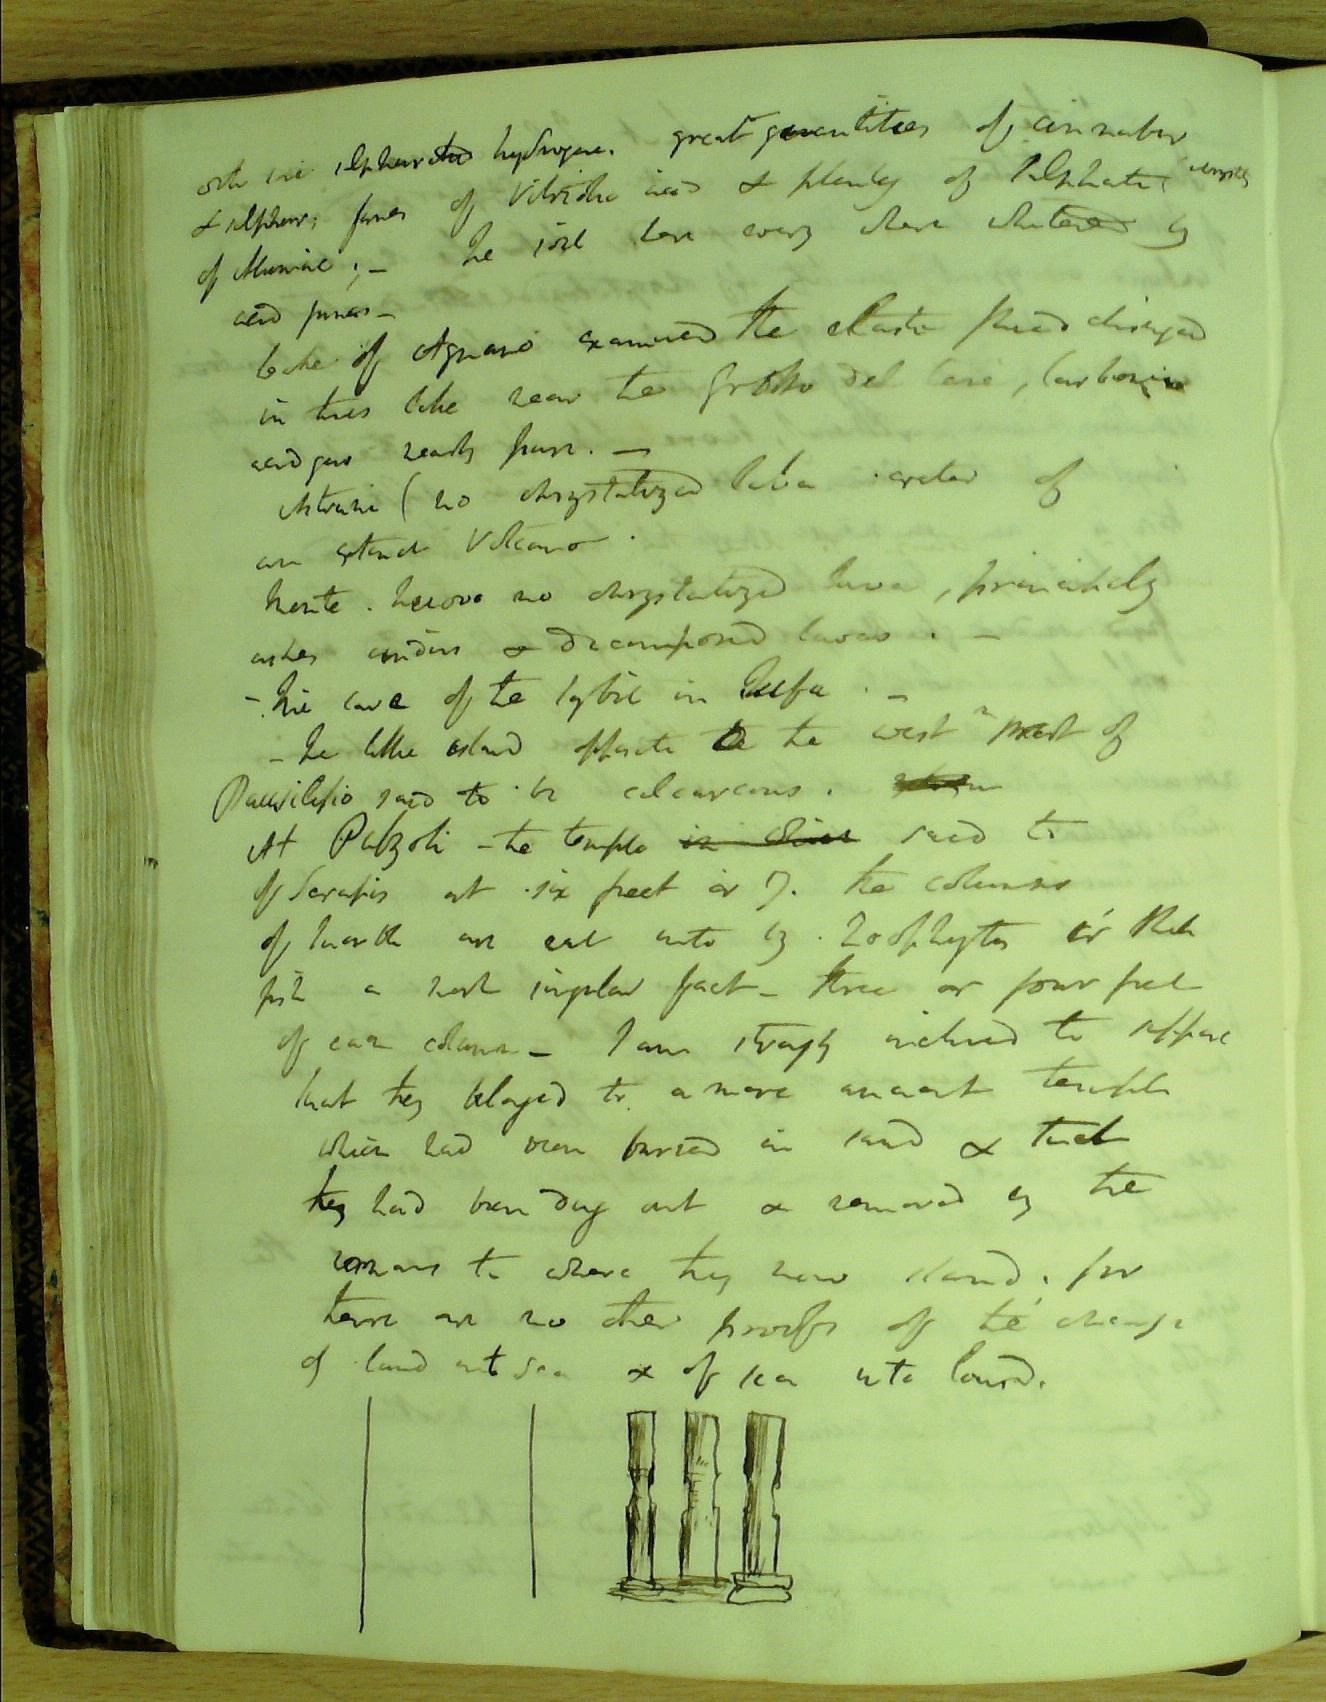 sulphurated hydrogene. great quantities of cinnabar
& sulphur; fumes of Vitriolic acid & plenty of Sulphate
of Alumine; - The soil here every where whitened by
acid fumes -
Lake of Agnano examined the elastic fluid disengaged
in this lake near the Grotto del Cane, Carbonic
acid gas nearly pure. -
Astruni (no chrystalized lava crater of
an extinct Volcano.
Monte. Nuovo no chrystalized lava, principally
ashes cinders & decomposed lavas. -
- The cave of the Sybil in Tufa. -
- The little island opposite to the west part of
Pausilipio said to be calcareous.
At Putzoli - the temple in said to
of Serapis at six feet or 7. the columns
of marble are eat into by Zoophytes or shell
fish a most singular fact - three or four feet
of each column - I am strongly inclined to suppose
that they belonged to a more ancient temple
which had been buried in sand & that
they had been dug out & removed by the
romans to where they now stand. for
there are no other proofs of the change
of land into sea & of sea into land.